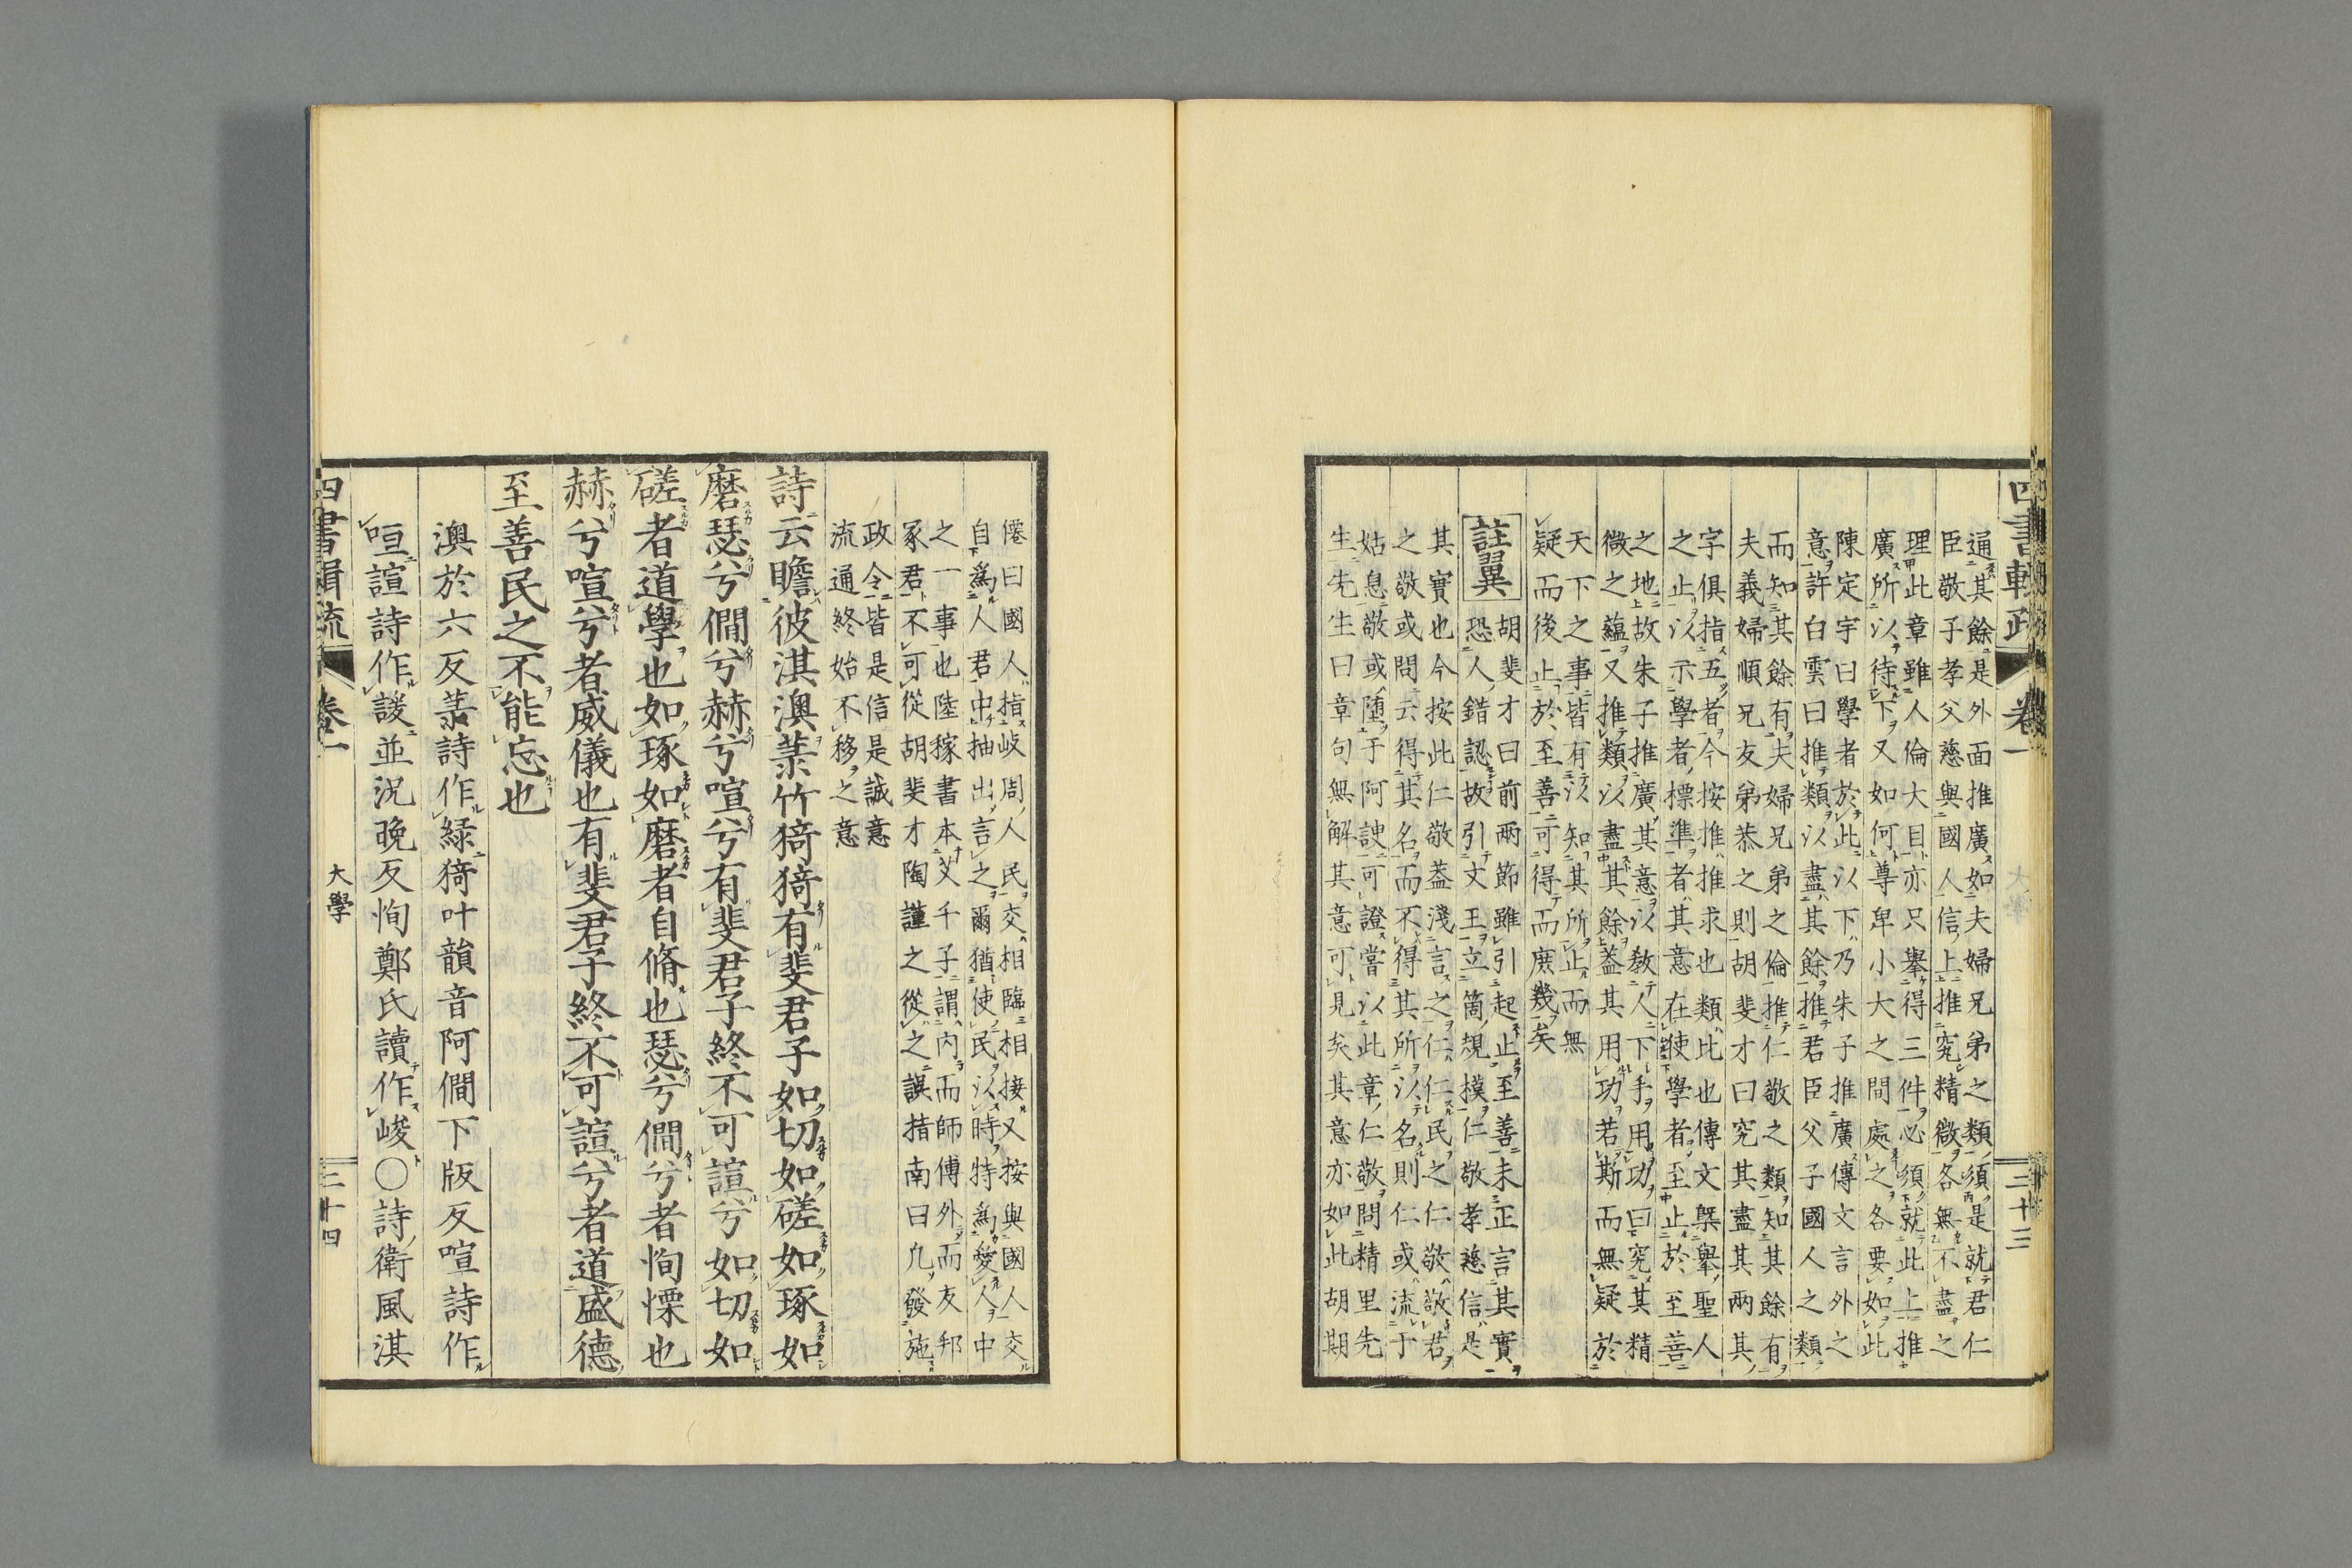 四書輯疏
卷一
三十三
通其餘是外面推廣如夫婦兄弟之類須是就君仁
臣敬子孝父慈與國人信上推究精微各無不盡之
理此章雖人倫大目亦只擧得三件必須就此上推
廣所以待下又如何尊卑小大之間處之各要如此
陳定宇曰學者於此以下乃朱子推廣傳文言外之
意許白雲曰推類以盡其餘推君臣父子國人之類
而知其餘有夫婦兄弟之倫推仁敬之類知其餘有
夫義婦順兄友弟恭之則胡斐才曰究其盡其兩其
字俱指五者今按推推求也類比也傳文槩擧聖人
之止以示學者標準者其意在使學者至止於至善
之地故朱子推廣其意以敎人下手用功曰究其精
微之蘊又推類以盡其餘葢其用功若斯而無疑於
天下之事皆有以知其所止而無
疑而後止於至善可得而庶幾矣
註翼
胡斐才曰前兩節雖引起止至善未正言其實
恐人錯認故引文王立箇規模仁敬孝慈信是
其實也今按此仁敬葢淺言之仁仁民之仁敬敬君
之敬或問云得其名而不得其所以名則仁或流于
姑息敬或墮于阿諛可證嘗以此章仁敬問精里先
生先生曰章句無解其意可見矣其意亦如此胡期
僊曰國人指岐周人民交相臨相接又按與國人交
自爲人君中抽出言之爾猶使民以時特爲愛人中
之一事也陸稼書本艾千子謂内而師傅外而友邦
冢君不可從胡斐才陶謹之從之誤措南曰凡發施
政令皆是信是誠意
流通終始不移之意
詩云瞻彼淇澳菉竹猗猗有斐君子如切如磋如琢如
磨瑟兮僩兮赫兮喧兮有斐君子終不可諠兮如切如
磋者道學也如琢如磨者自脩也瑟兮僩兮者恂慄也
赫兮喧兮者威儀也有斐君子終不可諠兮者道盛德
至善民之不能忘也
澳於六反菉詩作綠猗叶韻音阿僩下版反喧詩作
咺諠詩作諼並況晚反恂鄭氏讀作峻〇詩衛風淇
四書輯疏
卷一
大學
三十四